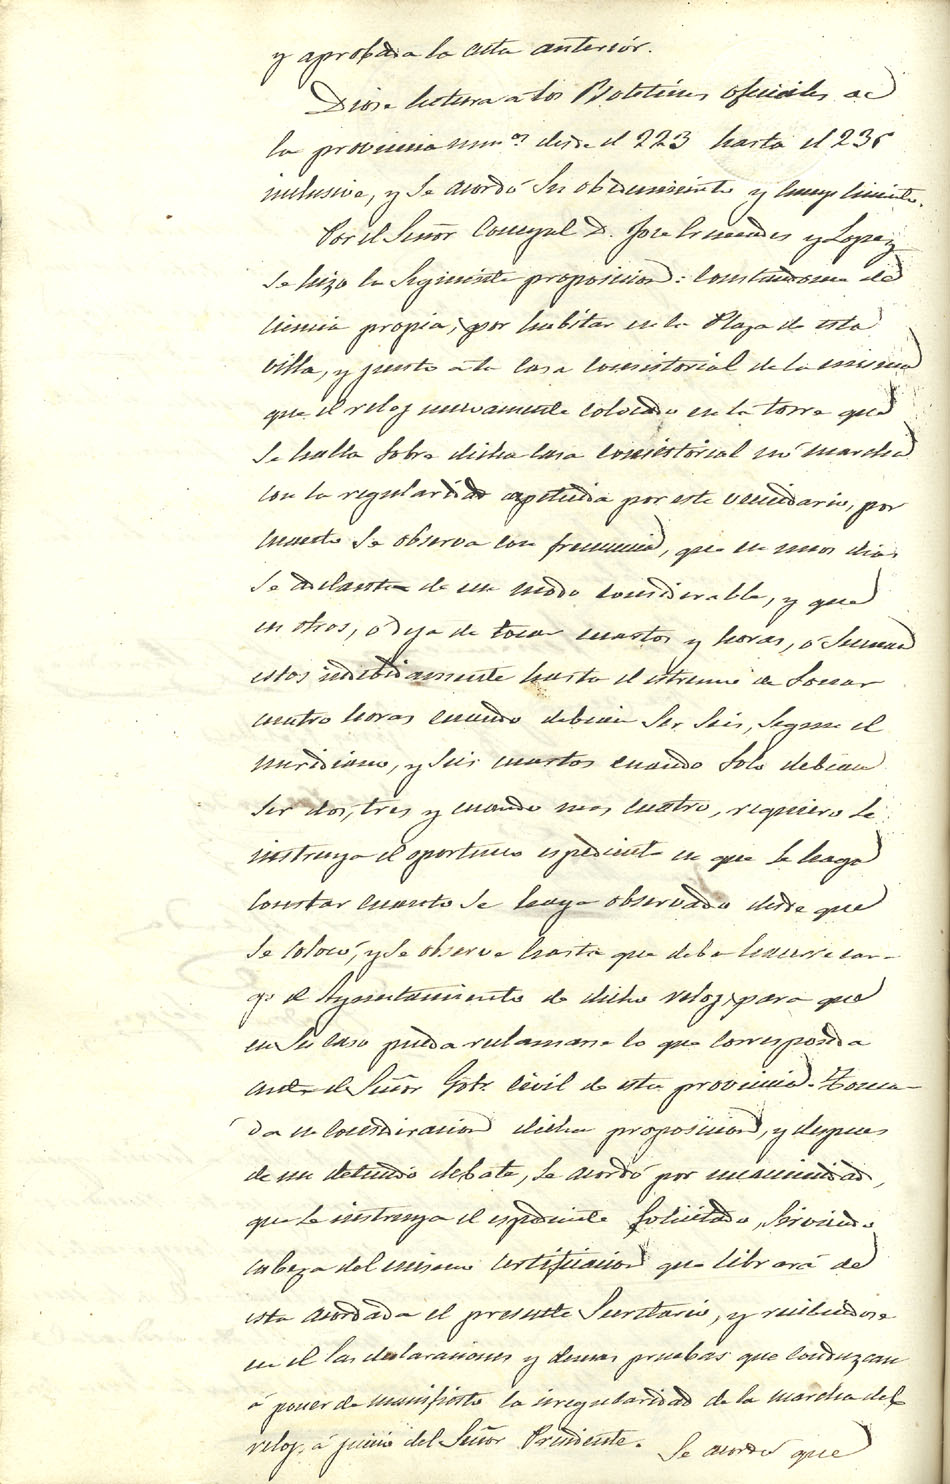 y aprobada la acta anterior.
Diose lectura a los Boletines oficiales de
la provincia num.os desde el 223 hasta el 236
inclusive, y se acordó su obedecimiento y cumplimiento.
Por el Señor Concejal D. Jose y Lopez
se hizo la siguiente proposicion: Constandome de
ciencia propia, por habitar en la Plaza de esta
villa, y junto a la casa consistorial de la misma
que el reloj nuevamente colocado en la torre que
se halla sobre dicha casa consistorial no marcha
con la regularidad apetecida por este vecindario, por
cuanto se observa con frecuencia, que en unos dias
se adelanta de un modo considerable, y que
en otros, ó deja de tocar cuartos y horas, ó suenan
estos indebidamente hasta el estremo de sonar
cuatro horas cuando debian ser seis, segun el
meridiano, y seis cuartos cuando solo debian
ser dos, tres y cuando mas cuatro, requiero se
instruya el oportuno espediente en que se haga
constar cuanto se haya observado desde que
se colocó, y se observe hasta que deba hacerse car-
go el Ayuntamiento de dicho reloj, para que
en su caso pueda reclamarse lo que corresponda
ante el Señor Gobr. civil de esta provincia. Toma-
da en consideracion dicha proposicion, y despues
de un detenido debate, se acordó por unanimidad,
que se instruya el espediente solicitado, sirviendo
cabeza del mismo certificacion que librará de
esta acordada el presente Secretario, y recibiendose
en el las declaraciones y demas pruebas que conduzcan
á poner de manifiesto la irregularidad de la marcha del
reloj, á juicio del Señor Presidente. Se acordó que